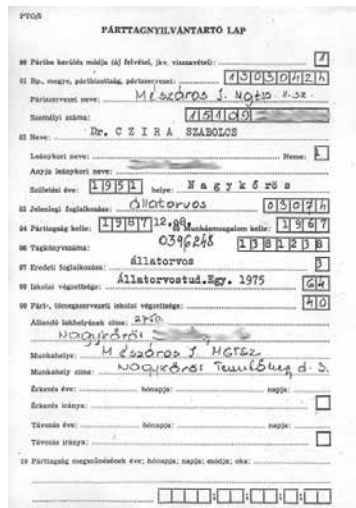 PTO/5
PÁRTTAGNYILVÁNTARTÓ LAP
00 Pártba kerülés módja (új felvétel, jkv. visszavétel): 1
01 Bp., megye, pártbizottság, pártszervezet: 1303042h
Pártszervezet neve: Mészáros J. Mgtsz. II.sz.
Személyi száma: 15109
02 Neve: Dr. CZIRA SZABOLCS
Leánykori neve: Neme: 1
Anyja leánykori neve:
Születési éve: 1951 helye: Nagykőrös
03 Jelenlegi foglalkozása: állatorvos 0307h
04 Párttagság kelte: 1987 12.08. Munkásmozgalom kelte: 1967
06 Tagkönyvszáma: 0396248 1381238
07 Eredeti foglalkozása: állatorvos 3
08 Iskolai végzettsége: Állatorvostud.Egy. 1975 64
09 Párt-, tömegszervezeti iskolai végzettsége: 40
Állandó lakhelyének címe: 2750
Nagykőrös
Munkahelye: Mészáros J. MGTSZ
Munkahely címe: Nagykőrösi d. 3.
Érkezés éve: hónapja: napja:
Érkezés iránya:
Távozás éve: hónapja: napja:
Távozás iránya:
10 Párttagság megszűnésének éve; hónapja; napja; módja; oka: